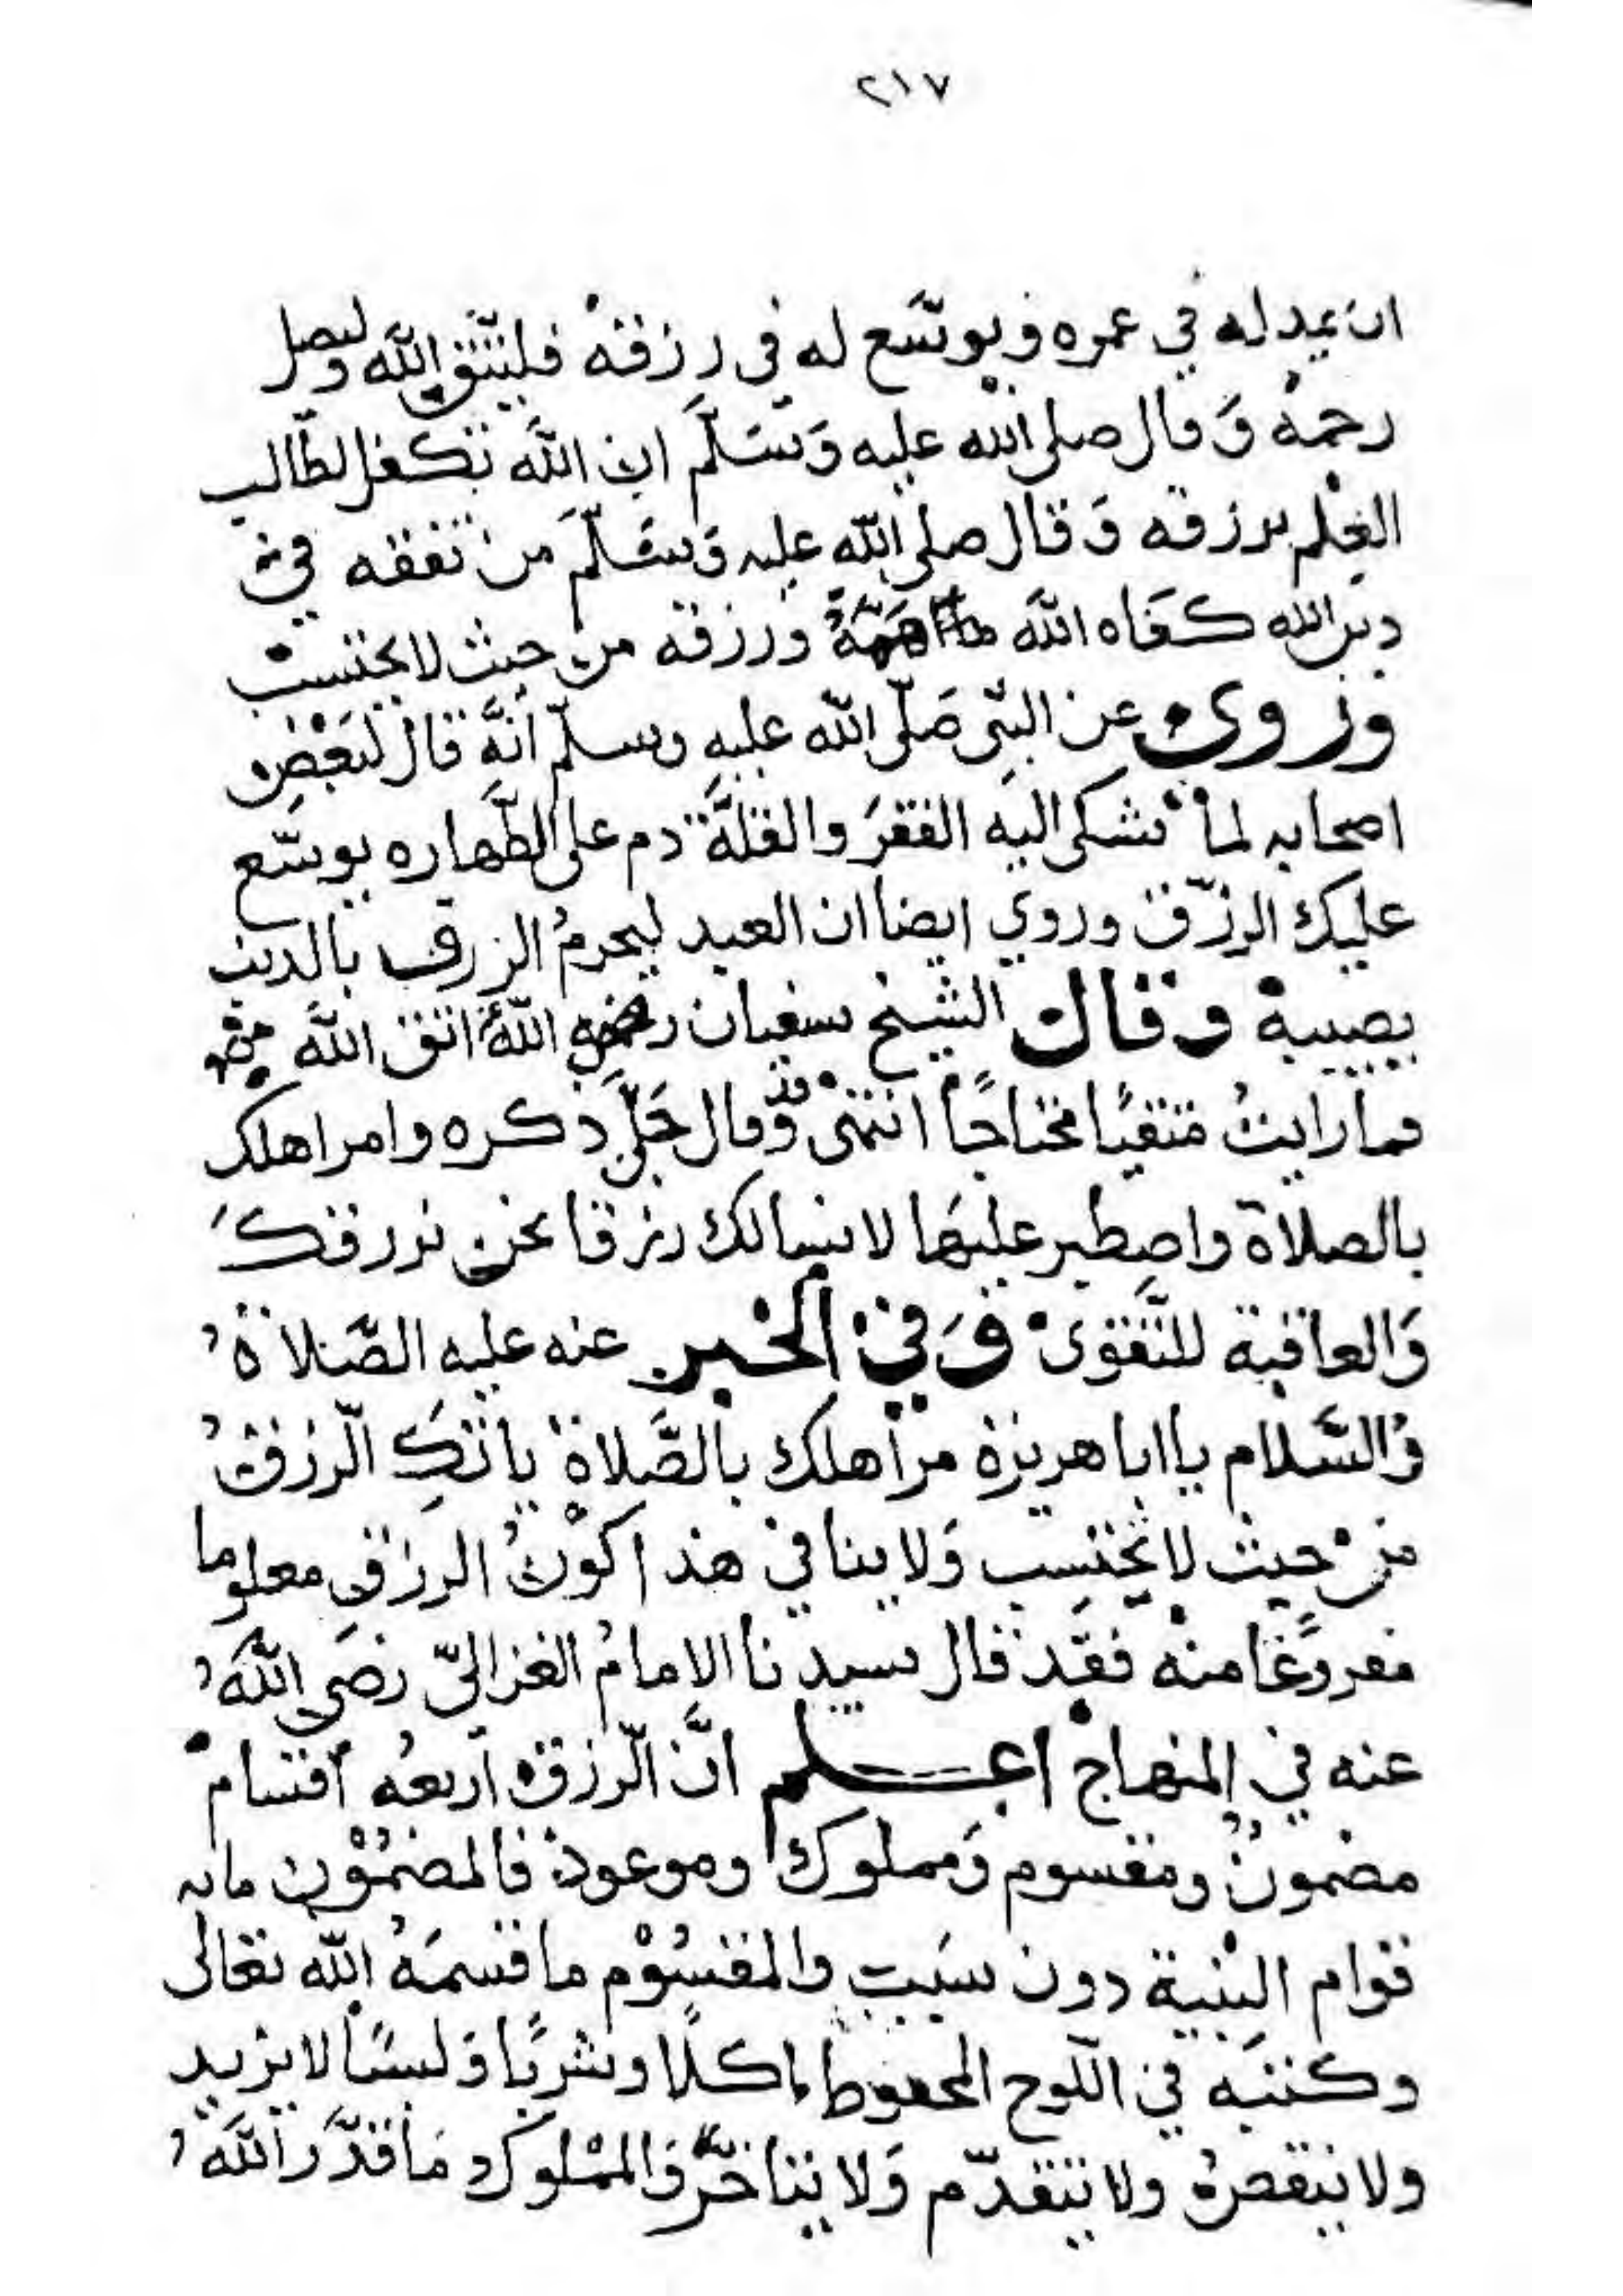 ٢١٧
ان يمد له في عمره ويوسّع له في رزقه فليتّق اللّه وليصل
رحمه وَقال صلى الله عليه وَسَلّمَ ان اللَّه تكفل لطّالب
العِلم برزقه وَقال صلى اللّه عليه وَسَلّمَ من تفقه في
دين الله كفاه اللَّه ما اهَمّهُ ورزقه من حيث لا يحتسب
وروي عن النبّي صَلّى اللّه عليهِ وسلّم أنَّه قال لبَعْضِ
اصحابه لما شكى اليه الفقرَ والقلَّة دم على الطَّهاره يوسّع
عليك الرزّق وروي ايضا ان العبد ليحرمُ الرزق بالذنب
يصيبه وقال الشيخ سفيان رضي اللّهُ اتق اللَّه
فما رايتُ متقيًا محتاجًا انتهى وقد قال جَلّ ذكره وامر اهلك
بالصلاة واصطبر عليهَا لا نسالك رزقا نحن نرزقكَ
وَالعاقبة للتَّقوى وَفي الخبر عنه عليه الصَّلاةُ
وَالسَّلام يا ابا هريرة مر أهلك بالصَّلاة ياتكِ الّرزقُ
من حيث لا يَحْتسِب وَلا ينافي هذا كوْنُ الرزق معلوما
مفروغًا منه فقَد قال سيدنا الامامُ الغزاليّ رضَي اللّهُ
عنه في المنهاج اعلم انَّ الّرزق أربعهُ أقسام
مضمونٌ ومقسوم وَمملوك وموعود فالمضمُوْن مابه
قوام البنْية دون سبَبٍ والمقسُوْم ما قسمَهُ اللّه تعالى
وكتبَه في اللّوح المحفوظ ماكلًا وشربًا وَلبسًا لا يزيد
ولا ينقص ولا يتقدّم وَلا يتاخَّر وَالممْلوك مَا قدَّر اللَّهُ